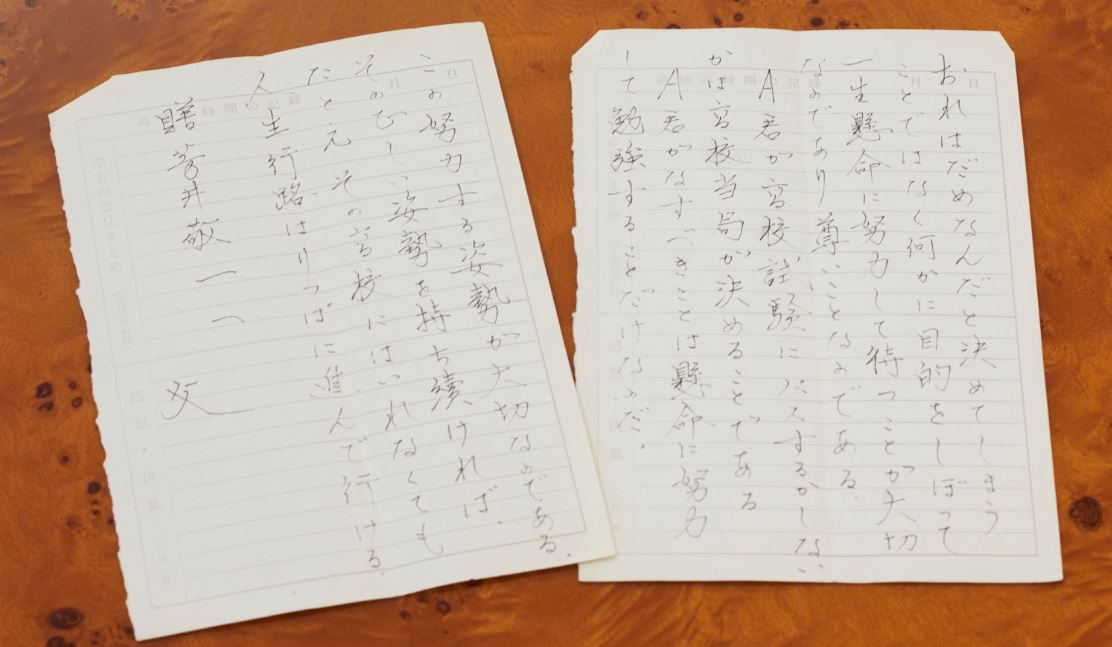 おれはだめなんだと決めてしまう
ことではなく何かに目的をしぼって
一生懸命に努力して待つことが大切
なのであり尊いことなのである
A君が高校試験にパスするかしない
かは高校当局が決めることである
A君がなすべきことは懸命に努力
して勉強することだけなのだ。
月 日
この努力する姿勢が大切なのである。
その正しい姿勢を持ち続ければ、
たとえその高校にはいれなくても
人生行路はりっぱに進んで行ける
贈 菅井敬一へ
父
時間の記録 月 日
学友の意見まとめ
感想・決意